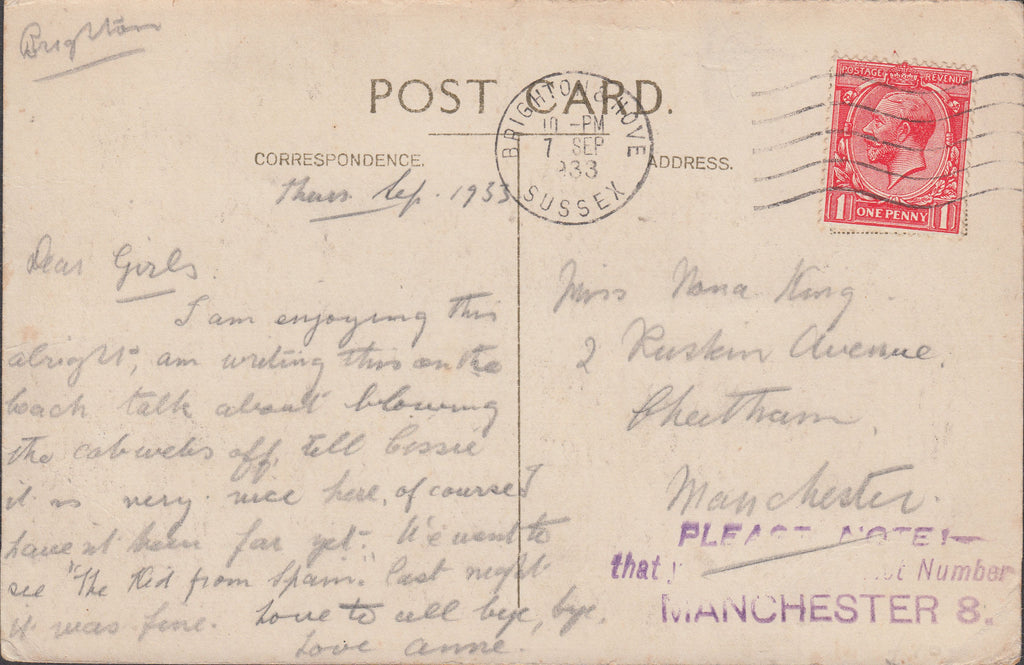 Brighton
POST CARD.
BRIGHTON & HOVE
10 - PM
7 SEP
1933
SUSSEX
POSTAGE REVENUE
1 ONE PENNY 1
CORRESPONDENCE.
ADDRESS.
Thurs Sep. 1933
Dear Girls
I am enjoying this
alright, am writing this on the
beach talk about blowing
the cobwebs off, tell Cissie
it is very nice here, of course I
have nt been far yet. We went to
see "The Kid from Spain." last night
it was fine. Love to all bye, bye.
Love Anne.
Miss Nona King
2 Ruskin Avenue,
Cheetham,
Manchester.
PLEASE NOTE!—
that Number
MANCHESTER 8.